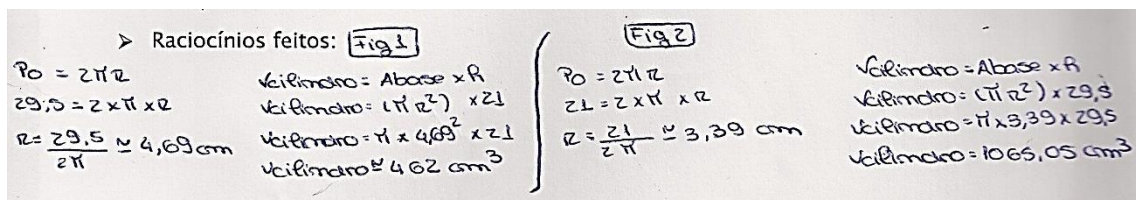 ➤ Raciocínios feitos: Fig 1
Po = 2πr
29,5 = 2 × π × r
r = 29,5 / 2π ≃ 4,69 cm
Vcilindro = Abase × h
Vcilindro = (π r²) × 21
Vcilindro = π × 4,69² × 21
Vcilindro ≃ 462 cm³
Fig 2
Po = 2πr
21 = 2 × π × r
r = 21 / 2π ≃ 3,39 cm
Vcilindro = Abase × h
Vcilindro = (π r²) × 29,5
Vcilindro = π × 3,39 × 29,5
Vcilindro = 1065,05 cm³